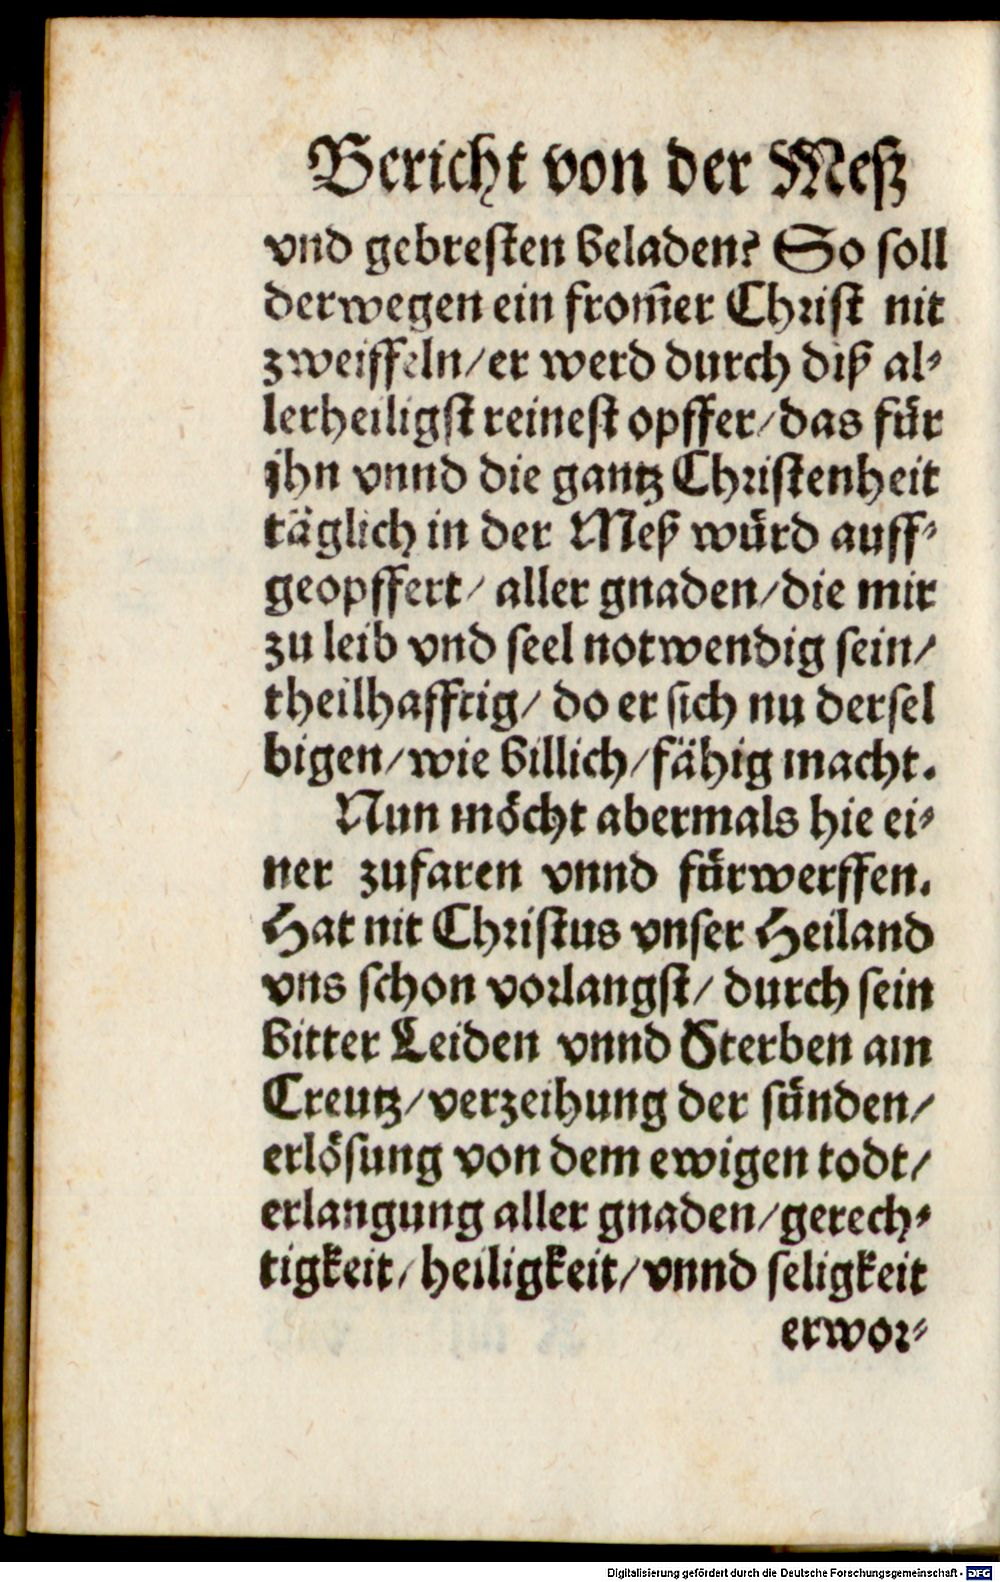 Bericht von der Meß
vnd gebresten beladen? So soll
derwegen ein from̃er Christ nit
zweiffeln/er werd durch diß al⸗
lerheiligst reinest opffer/das für
jhn vnnd die gantz Christenheit
täglich in der Meß würd auff⸗
geopffert/ aller gnaden/die mir
zu leib vnd seel notwendig sein/
theilhafftig/ do er sich nu dersel
bigen/wie billich/fähig macht.
Nun möcht abermals hie ei⸗
ner zufaren vnnd fürwerffen.
Hat nit Christus vnser Heiland
vns schon vorlangst/ durch sein
bitter Leiden vnnd Sterben am
Creutz/verzeihung der sünden/
erlösung von dem ewigen todt/
erlangung aller gnaden/gerech⸗
tigkeit/heiligkeit/vnnd seligkeit
erwor⸗
Digitalisierung gefördert durch die Deutsche Forschungsgemeinschaft - DFG